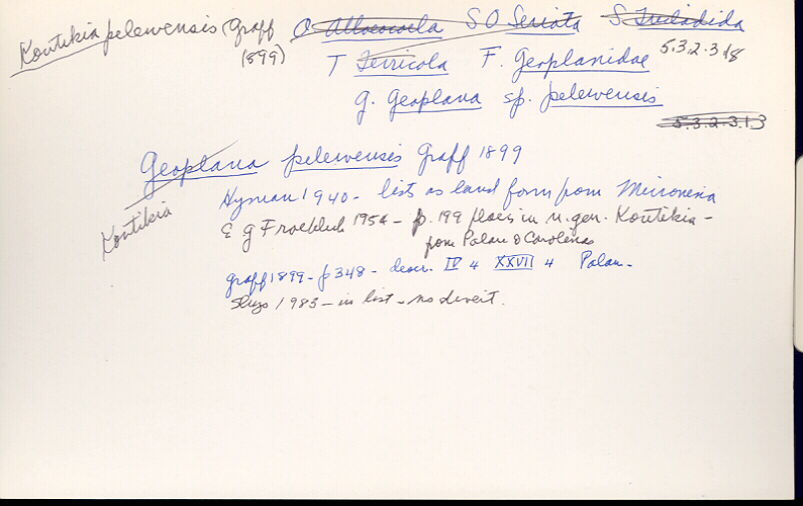 Kontikia pelewensis (Graff 1899)
O Alloeocoela SO Seriata S. Tricladida
T Terricola F. Geoplanidae 5.3.2.3.18
g. Geoplana sp. pelewensis
5.3.2.3.13
Geoplana pelewensis Graff 1899
Kontikia
Hyman 1940 - lists as land form from Micronesia
E g Froehlich 1954 - p. 199 places in n. gen. Kontikia -
from Palau & Carolinas
Graff 1899 - p 348 - descr. IV 4 XXVII 4 Palau -
1983 - in list - no divert.